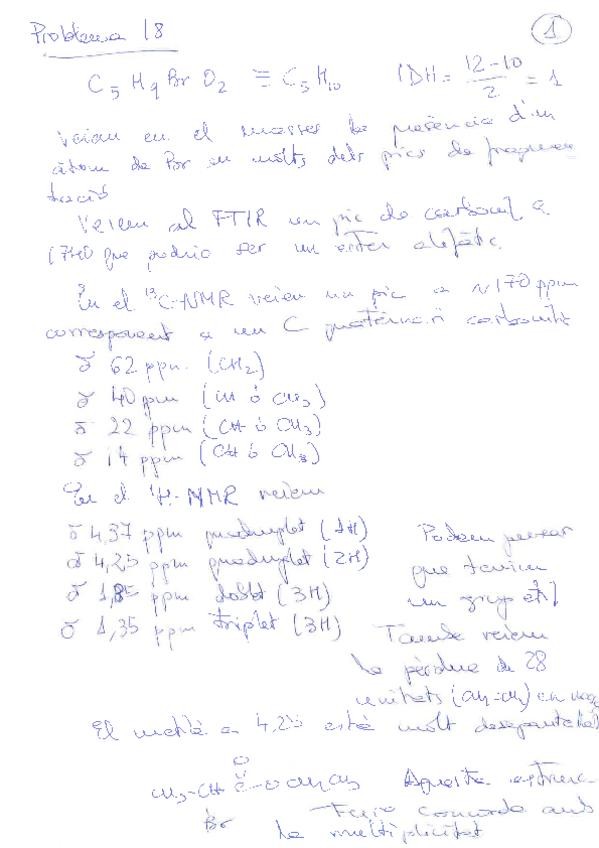 Problema 18 1
C5 H9 Br O2 ≡ C5 H10 IDH = (12-10)/2 = 1
Veiem en el masses la presència d'un
àtom de Br en molts dels pics de fragmen
tació
Veiem al FTIR un pic de carbonil a
1740 que podria ser un ester alifàtic
En el 13C-NMR veiem un pic a ~170 ppm
corresponent a un C quaternari carbonílic
δ 62 ppm (CH2)
δ 40 ppm (CH ó CH3)
δ 22 ppm (CH ó CH3)
δ 14 ppm (CH ó CH3)
En el 1H-NMR veiem
δ 4,37 ppm quadruplet (1H) Podem pensar
δ 4,25 ppm quadruplet (2H) que tenim
δ 1,85 ppm doblet (3H) un grup etil
δ 1,35 ppm triplet (3H) També veiem
la pèrdua de 28
unitats (CH2=CH2) en
El metilè a 4,25 està molt desapantallat
O
CH3-CH-C-OCH2CH3 Aquesta estruc
Br tura concorda amb
la multiplicitat